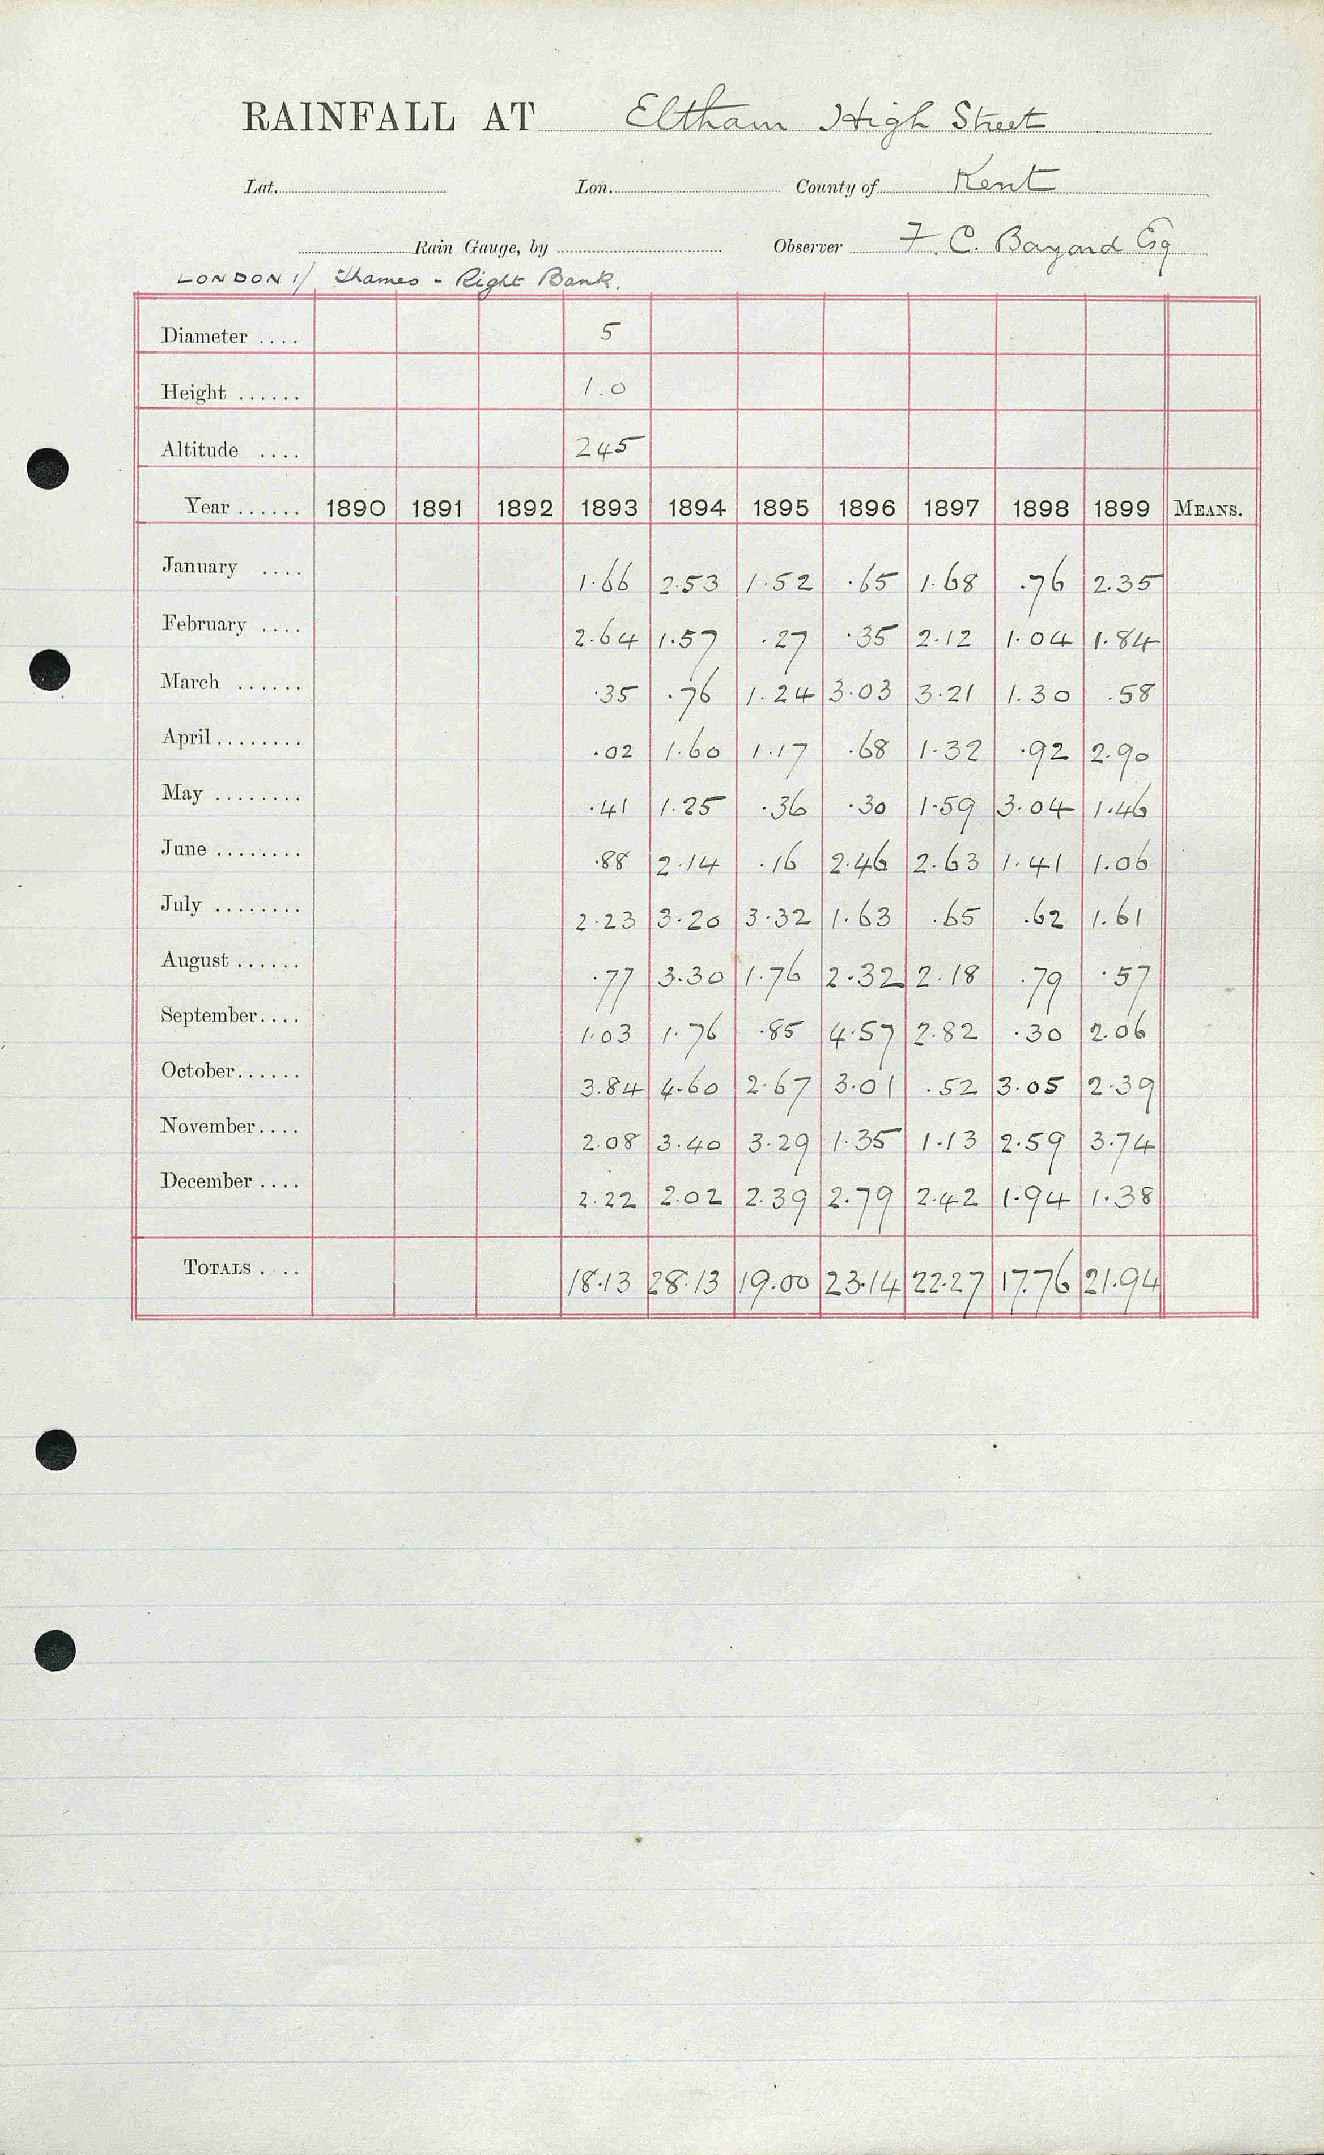 RAINFALL AT Eltham High Street
Lat. Lon. County of Kent
Rain Gauge, by Observer F. C. Bayard Esq
LONDON 1/ Thames - Right Bank.
Diameter .... 5
Height ...... 1.0
Altitude .... 245
Year ...... 1890 1891 1892 1893 1894 1895 1896 1897 1898 1899 MEANS.
January .... 1.66 2.53 1.52 .65 1.68 .76 2.35
February .... 2.64 1.57 .27 .35 2.12 1.04 1.84
March ...... .35 .76 1.24 3.03 3.21 1.30 .58
April ........ .02 1.60 1.17 .68 1.32 .92 2.90
May ........ .41 1.25 .36 .30 1.59 3.04 1.46
June ........ .88 2.14 .16 2.46 2.63 1.41 1.06
July ........ 2.23 3.20 3.32 1.63 .65 .62 1.61
August ...... .77 3.30 1.76 2.32 2.18 .79 .57
September.... 1.03 1.76 .85 4.57 2.82 .30 2.06
October...... 3.84 4.60 2.67 3.01 .52 3.05 2.39
November.... 2.08 3.40 3.29 1.35 1.13 2.59 3.74
December .... 2.22 2.02 2.39 2.79 2.42 1.94 1.38
TOTALS .... 18.13 28.13 19.00 23.14 22.27 17.76 21.94